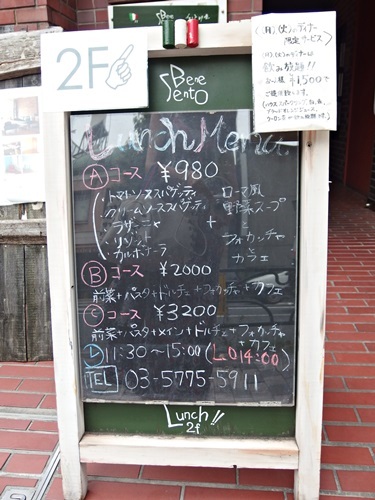 2F
Bene
Vento
(月)、(火)のディナー
限定サービス
飲み放題!!
¥1,500で
Lunch Menu
Ⓐコース ¥980
トマトソーススパゲッティ
クリームソーススパゲッティ
ラザーニャ
リゾット
カルボナーラ
+
ローマ風
野菜スープ
+
フォカッチャ
と
カフェ
Ⓑコース ¥2000
前菜+パスタ+ドルチェ+フォカッチャ+カフェ
Ⓒコース ¥3200
前菜+パスタ+メイン+ドルチェ+フォカッチャ
+カフェ
Ⓛ11:30~15:00(L.O14:00)
TEL 03-5775-5911
Lunch!!
2f